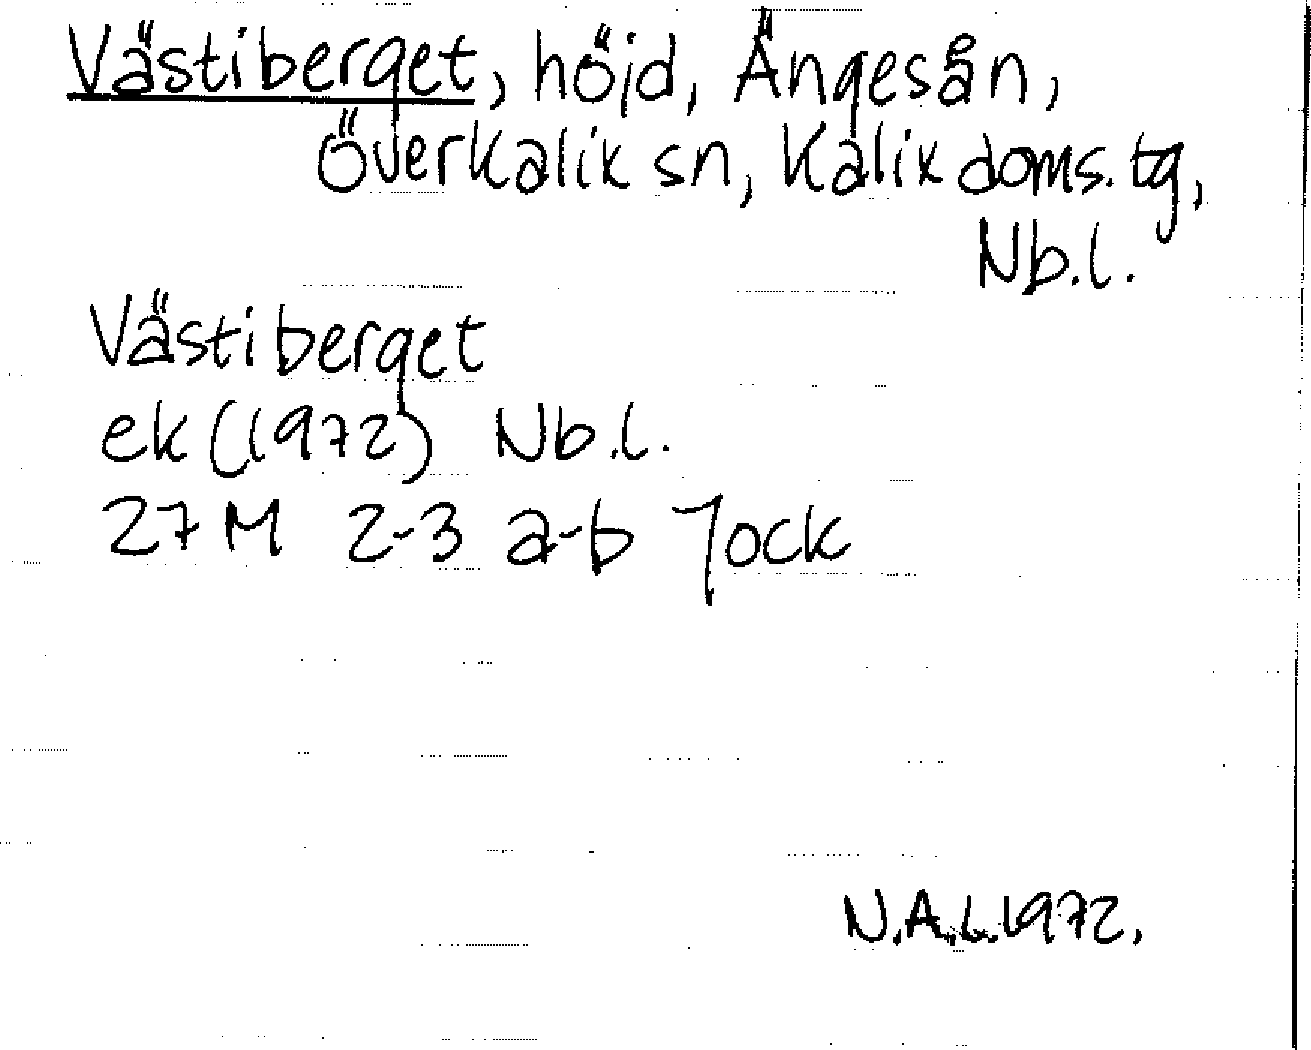 Västiberget, höjd, Ängesån,
Överkalix sn, Kalix doms.tg,
Nb.l.
Västiberget
ek (1972) Nb.l.
27M 2-3 a-b Jock
N.A.L. 1972.